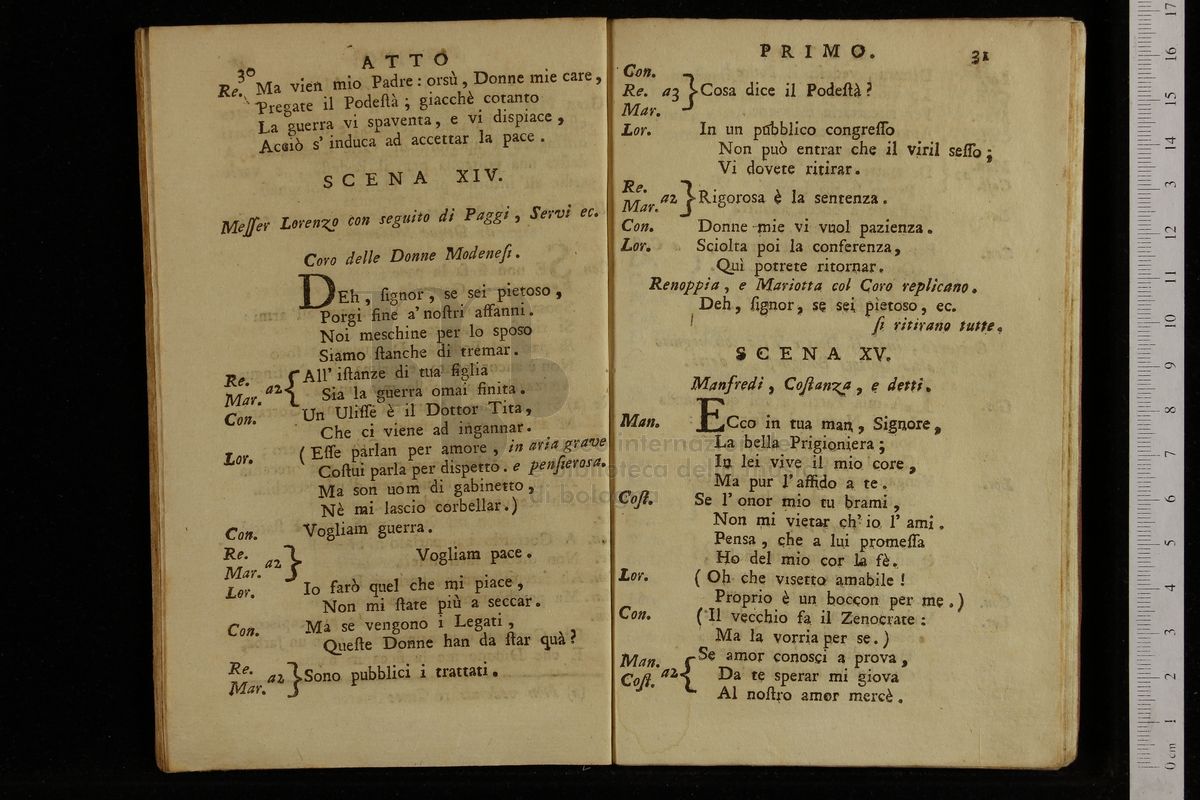 30 ATTO
Re. Ma vien mio Padre : orsù, Donne mie care,
Pregate il Podeſtà ; giacchè cotanto
La guerra vi spaventa, e vi dispiace,
Acciò s' induca ad accettar la pace.
SCENA XIV.
Meſſer Lorenzo con seguito di Paggi, Servi ec.
Coro delle Donne Modeneſi.
DEh, ſignor, se sei pietoso,
Porgi fine a' noſtri affanni.
Noi meschine per lo sposo
Siamo ſtanche di tremar.
Re. Mar. a2 { All' iſtanze di tua figlia
Sia la guerra omai finita.
Con. Un Uliſſe è il Dottor Tita,
Che ci viene ad ingannar.
Lor. ( Eſſe parlan per amore, in aria grave
Coſtui parla per dispetto. e penſierosa.
Ma son uom di gabinetto,
Nè mi lascio corbellar.)
Con. Vogliam guerra.
Re. Mar. a2 } Vogliam pace.
Lor. Io farò quel che mi piace,
Non mi ſtate più a seccar.
Con. Ma se vengono i Legati,
Queſte Donne han da ſtar quà?
Re. Mar. a2 } Sono pubblici i trattati.
PRIMO. 31
Con. Re. Mar. a3 } Cosa dice il Podeſtà?
Lor. In un pubblico congreſſo
Non può entrar che il viril seſſo;
Vi dovete ritirar.
Re. Mar. a2 } Rigorosa è la sentenza.
Con. Donne mie vi vuol pazienza.
Lor. Sciolta poi la conferenza,
Quì potrete ritornar.
Renoppia, e Mariotta col Coro replicano.
Deh, ſignor, se sei pietoso, ec.
ſi ritirano tutte.
SCENA XV.
Manfredi, Coſtanza, e detti.
Man. ECco in tua man, Signore,
La bella Prigioniera;
In lei vive il mio core,
Ma pur l' affido a te.
Coſt. Se l' onor mio tu brami,
Non mi vietar ch' io l' ami.
Pensa, che a lui promeſſa
Ho del mio cor la fè.
Lor. ( Oh che visetto amabile!
Proprio è un boccon per me.)
Con. ( Il vecchio fa il Zenocrate:
Ma la vorria per se.)
Man. Coſt. a2 { Se amor conosci a prova,
Da te sperar mi giova
Al noſtro amor mercè.